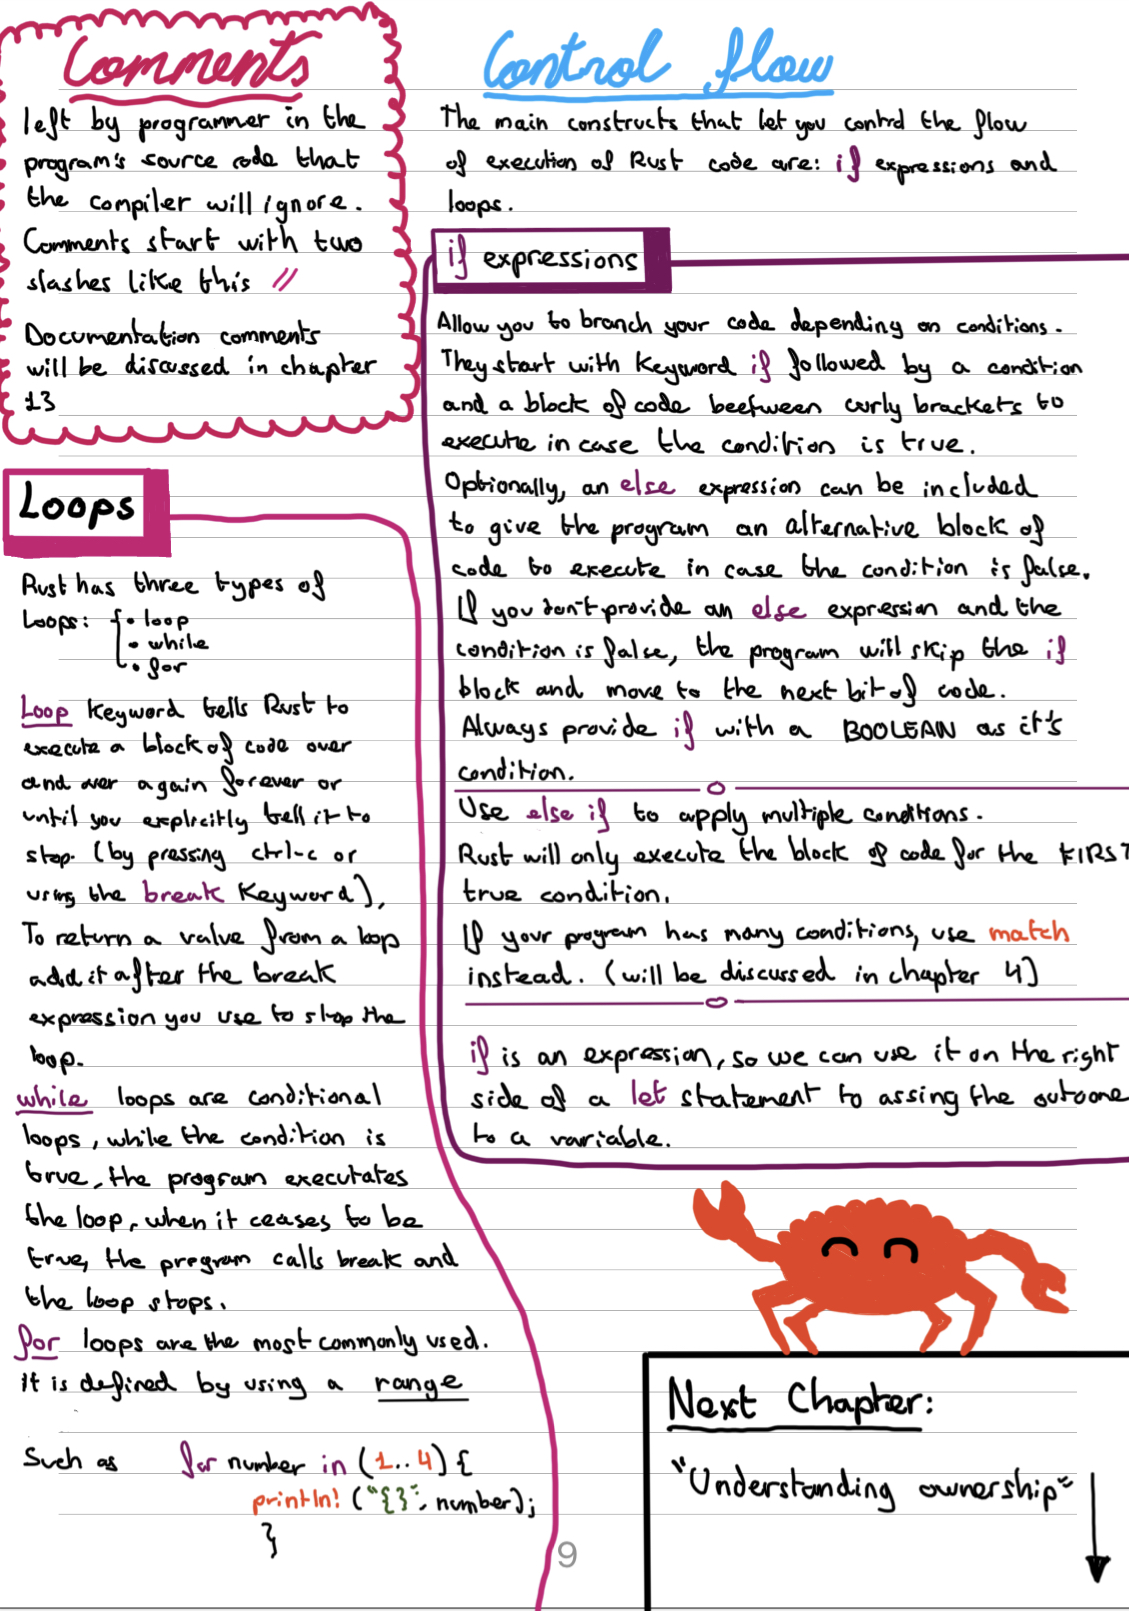 Comments
left by programmer in the
program's source code that
the compiler will ignore.
Comments start with two
slashes like this //
Documentation comments
will be discussed in chapter
13
Loops
Rust has three types of
Loops: { • loop
• while
• for
Loop Keyword tells Rust to
execute a block of code over
and over again forever or
until you explicitly tell it to
stop. (by pressing ctrl-c or
using the break Keyword),
To return a value from a loop
add it after the break
expression you use to stop the
loop.
while loops are conditional
loops, while the condition is
true, the program executates
the loop, when it ceases to be
true, the program calls break and
the loop stops.
for loops are the most commonly used.
it is defined by using a range
Such as for number in (1..4) {
println! ("{}", number);
}
Control flow
The main constructs that let you control the flow
of execution of Rust code are: if expressions and
loops.
if expressions
Allow you to branch your code depending on conditions.
They start with Keyword if followed by a condition
and a block of code beetween curly brackets to
execute in case the condition is true.
Optionally, an else expression can be included
to give the program an alternative block of
code to execute in case the condition is false.
If you don't provide an else expression and the
condition is false, the program will skip the if
block and move to the next bit of code.
Always provide if with a BOOLEAN as it's
condition.
Use else if to apply multiple conditions.
Rust will only execute the block of code for the FIRST
true condition.
If your program has many conditions, use match
instead. (will be discussed in chapter 4)
if is an expression, so we can use it on the right
side of a let statement to assing the outcome
to a variable.
Next Chapter:
"Understanding ownership"
9